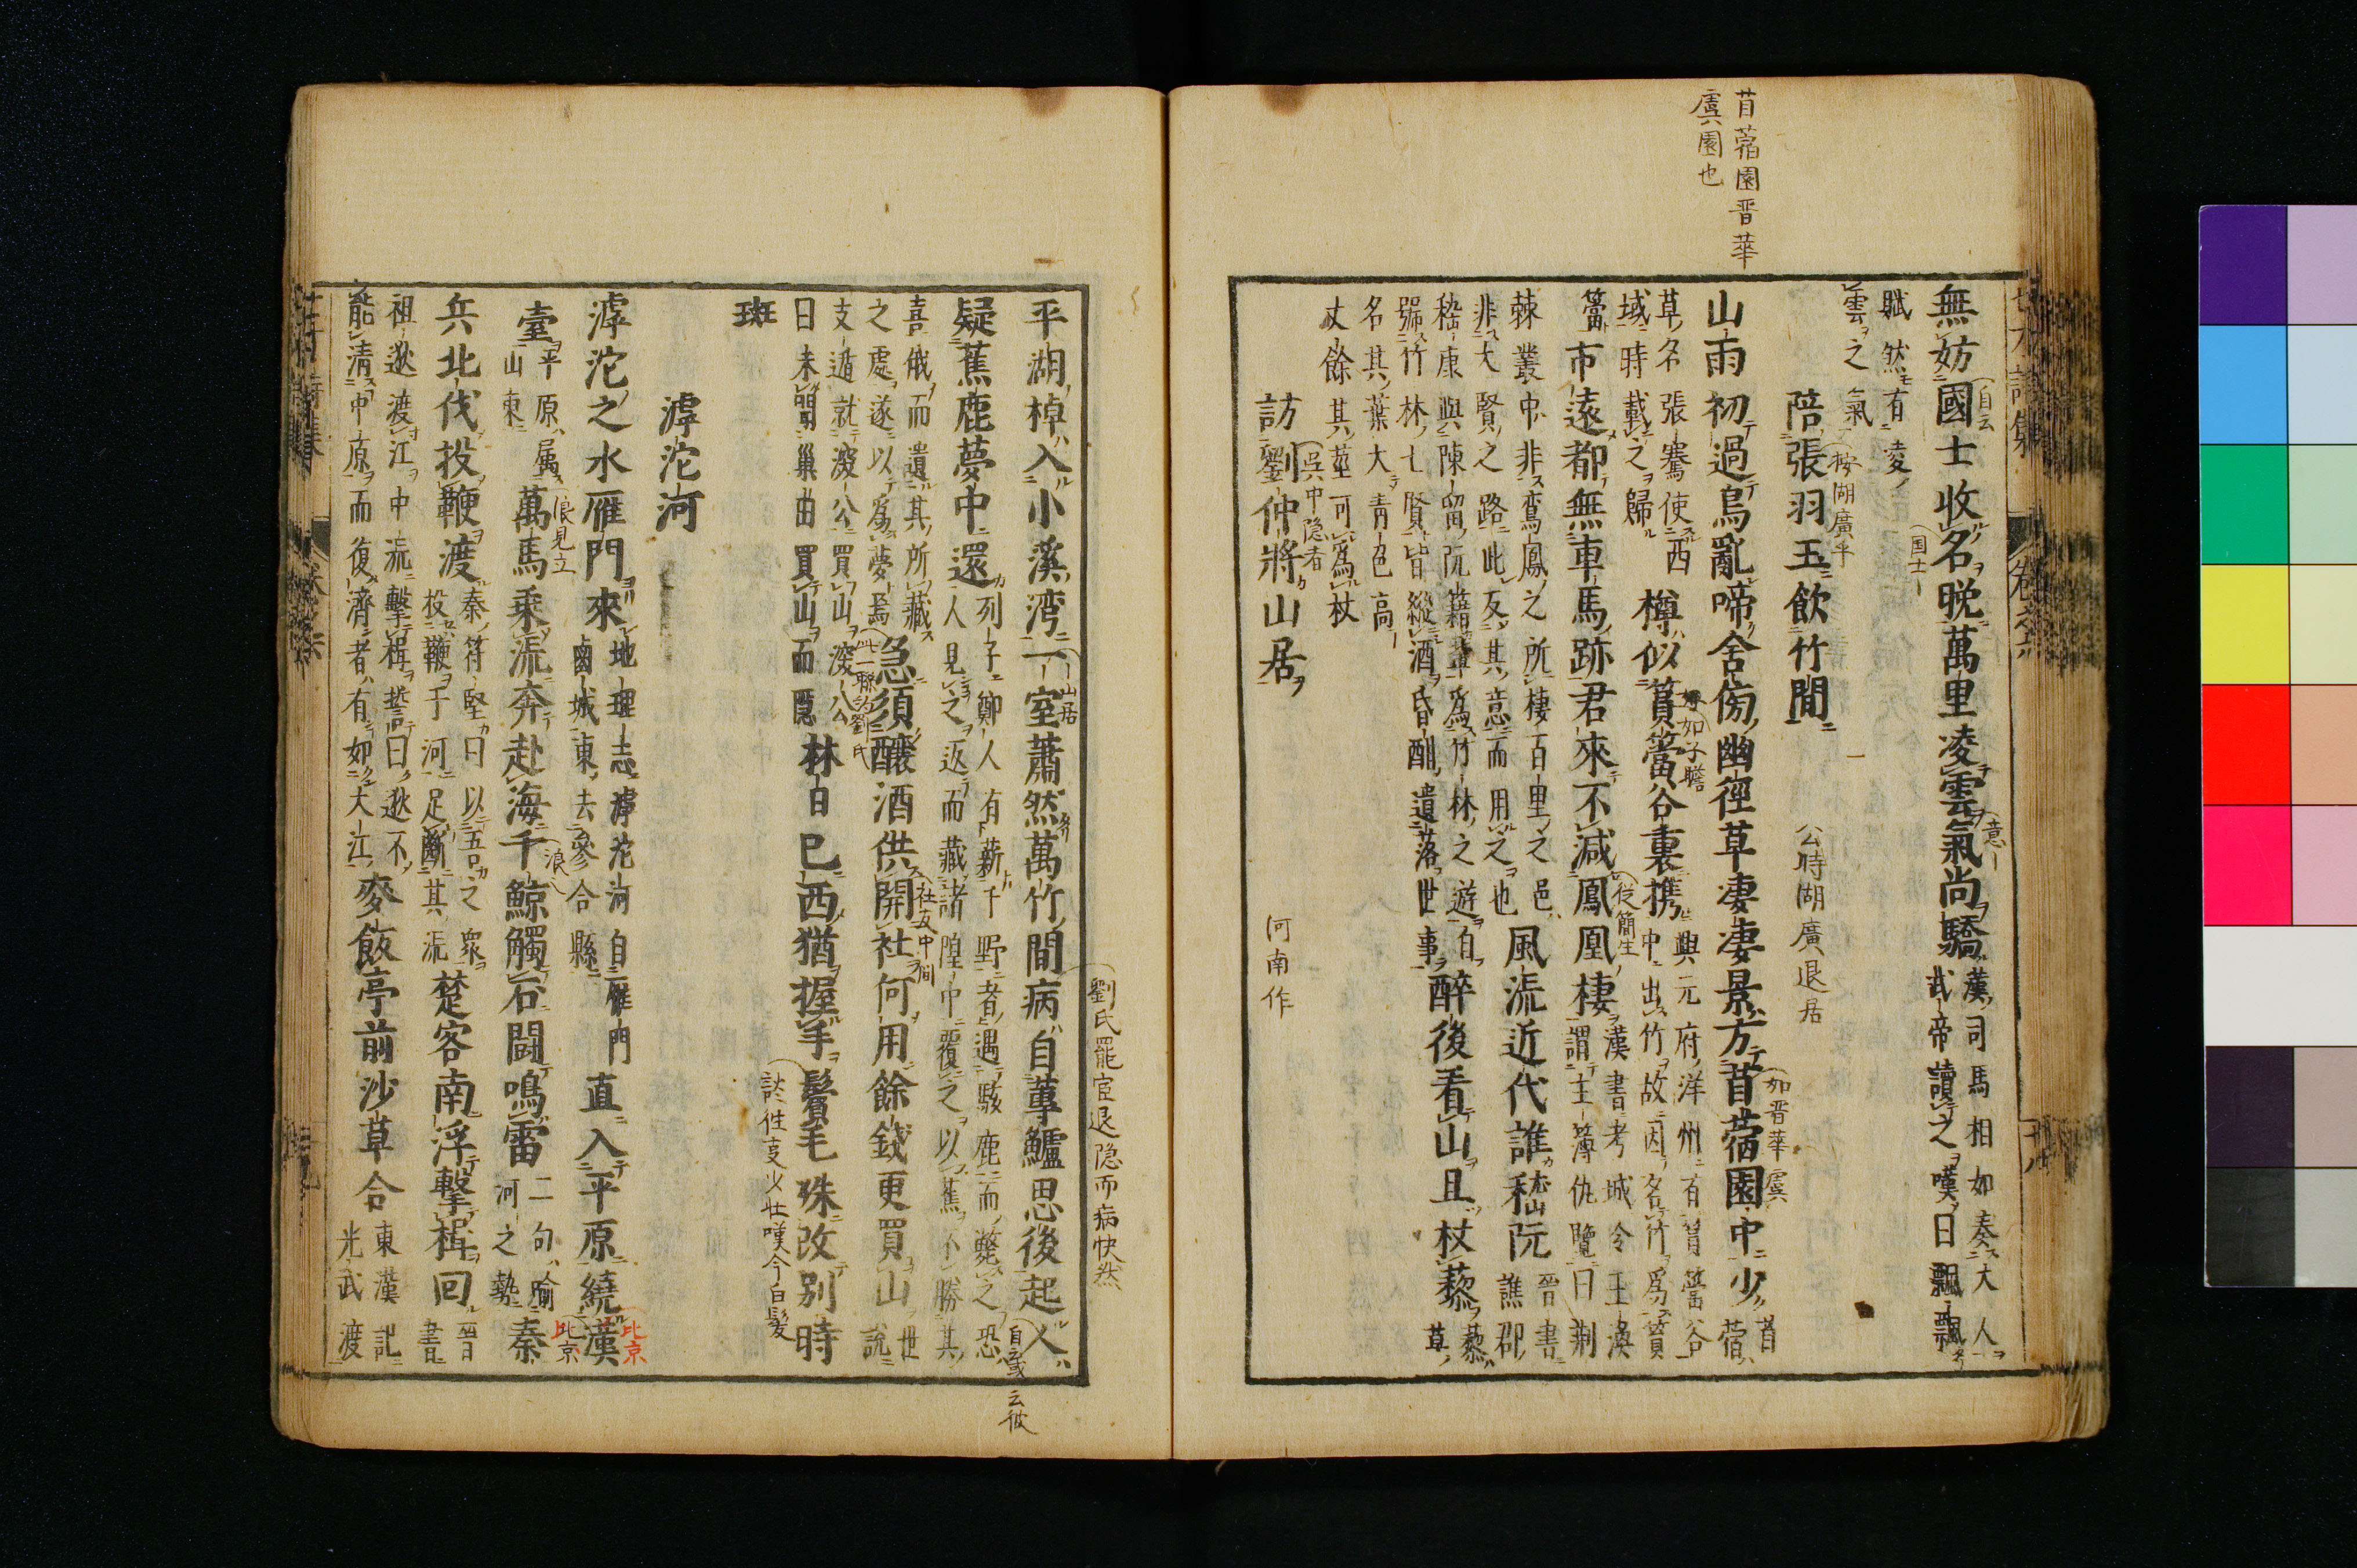 苜蓿園晋華
虞園也
無妨國士收名晚萬里凌雲氣尚驕漢司馬相如奏大人
武帝讀之嘆曰飄飄
賦然有凌
雲之氣
自云
国士
意
陪張羽玉飲竹間
按湖廣乎
公時湖廣退居
山雨初過烏亂啼舍傍幽徑草凄凄景方苜蓿園中少苜
蓿
如晋華虞
草名張騫使西
域時載之歸
樽似篔簹谷裏携興元府洋州有篔簹谷
中出竹故因名竹爲篔
如子瞻
簹市遠都無車馬跡君來不減鳳凰棲漢書考城令王渙
謂主簿仇覽曰荊
從簡生
棘叢中非鸞鳳之所棲百里之邑
非大賢之路此反其意而用之也
風流近代誰嵇阮晉書
譙郡
嵇康與陳留阮籍輩爲竹林之遊自
號竹林七賢皆縱酒昏酣遺落世事
醉後看山且杖藜藜
草
名其葉大青色高
丈餘其莖可爲杖
訪劉仲將山居
吳中隐者
河南作
劉氏罷宦退隐而病快然
平湖棹入小溪湾一室蕭然萬竹間病自蓴鱸思後起人
山居
自云或云彼
疑蕉鹿夢中還列子鄭人有薪于野者遇駭鹿而斃之恐
人見之返而藏諸隍中覆之以蕉不勝其
喜俄而遺其所藏
之處遂以爲夢焉
急須釀酒供開社何用餘錢更買山世
說
此一聯為劉氏
社友中間
支遁就深公買山深公
曰未聞巢由買山而隱
林日已西猶握手鬢毛殊改别時
談往事少壮嘆今白髪
斑
滹沱河
滹沱之水雁門來地理志滹沱河自雁門
鹵城東去參合縣
直入平原繞漢
比京
臺平原属
山東
萬馬乘流奔赴海千鯨觸石闘鳴雷二句喻
河之勢
秦
浪見立
浪
比京
兵北伐投鞭渡秦苻堅曰以吾之衆
投鞭于河足斷其流
楚客南浮擊楫回晉
書
祖逖渡江中流擊楫誓曰逖不
能清中原而復濟者有如大江
麥飯亭前沙草合東漢記
光武渡